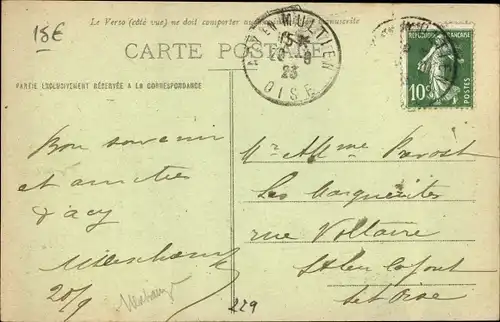 15€
Le Verso (côté vue) ne doit comporter
CARTE POSTALE
ACY EN MULTIEN
15
20 - 9
23
OISE
RÉPUBLIQUE FRANÇAISE
10c
POSTES
PARTIE EXCLUSIVEMENT RÉSERVÉE A LA CORRESPONDANCE
Bon souvenir
et amitiés
d'acy
20/9
Mr et Mme Prevost
Les Marguerites
rue Voltaire
St Leu la forêt
Set Oise
229